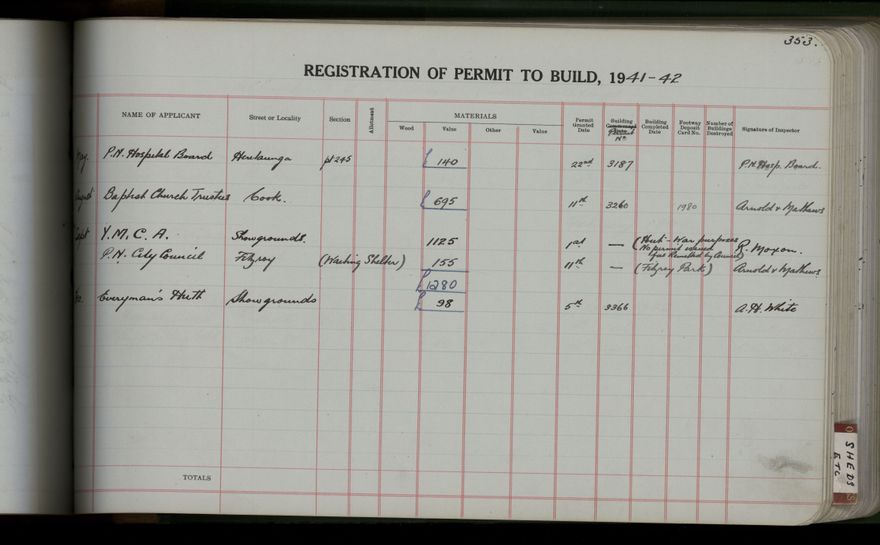 353.
REGISTRATION OF PERMIT TO BUILD, 1941-42
NAME OF APPLICANT Street or Locality Section Allotment MATERIALS Wood Value Other Value Permit Granted Date Building Permit No Building Completed Date Footway Deposit Card No. Number of Buildings Destroyed Signature of Inspector
P.N. Hospital Board pt 245 £ 140 22nd 3187 P.N. Hosp. Board.
Baptist Church Trustees Cook. £ 695 11th 3260 1980 Arnold & Mathews
Sept Y.M.C.A. Showgrounds. 1125 1st — (Hut - War purposes
No permit issued
fees Remitted by Council) R. Moxon.
P.N. City Council Fitzroy (Waiting Shelter) 155 11th — (Fitzroy Park) Arnold & Mathews
£1280
Everyman's Hutt Showgrounds £ 98 5th 3366 A.H. White
TOTALS
SHEDS
ETC